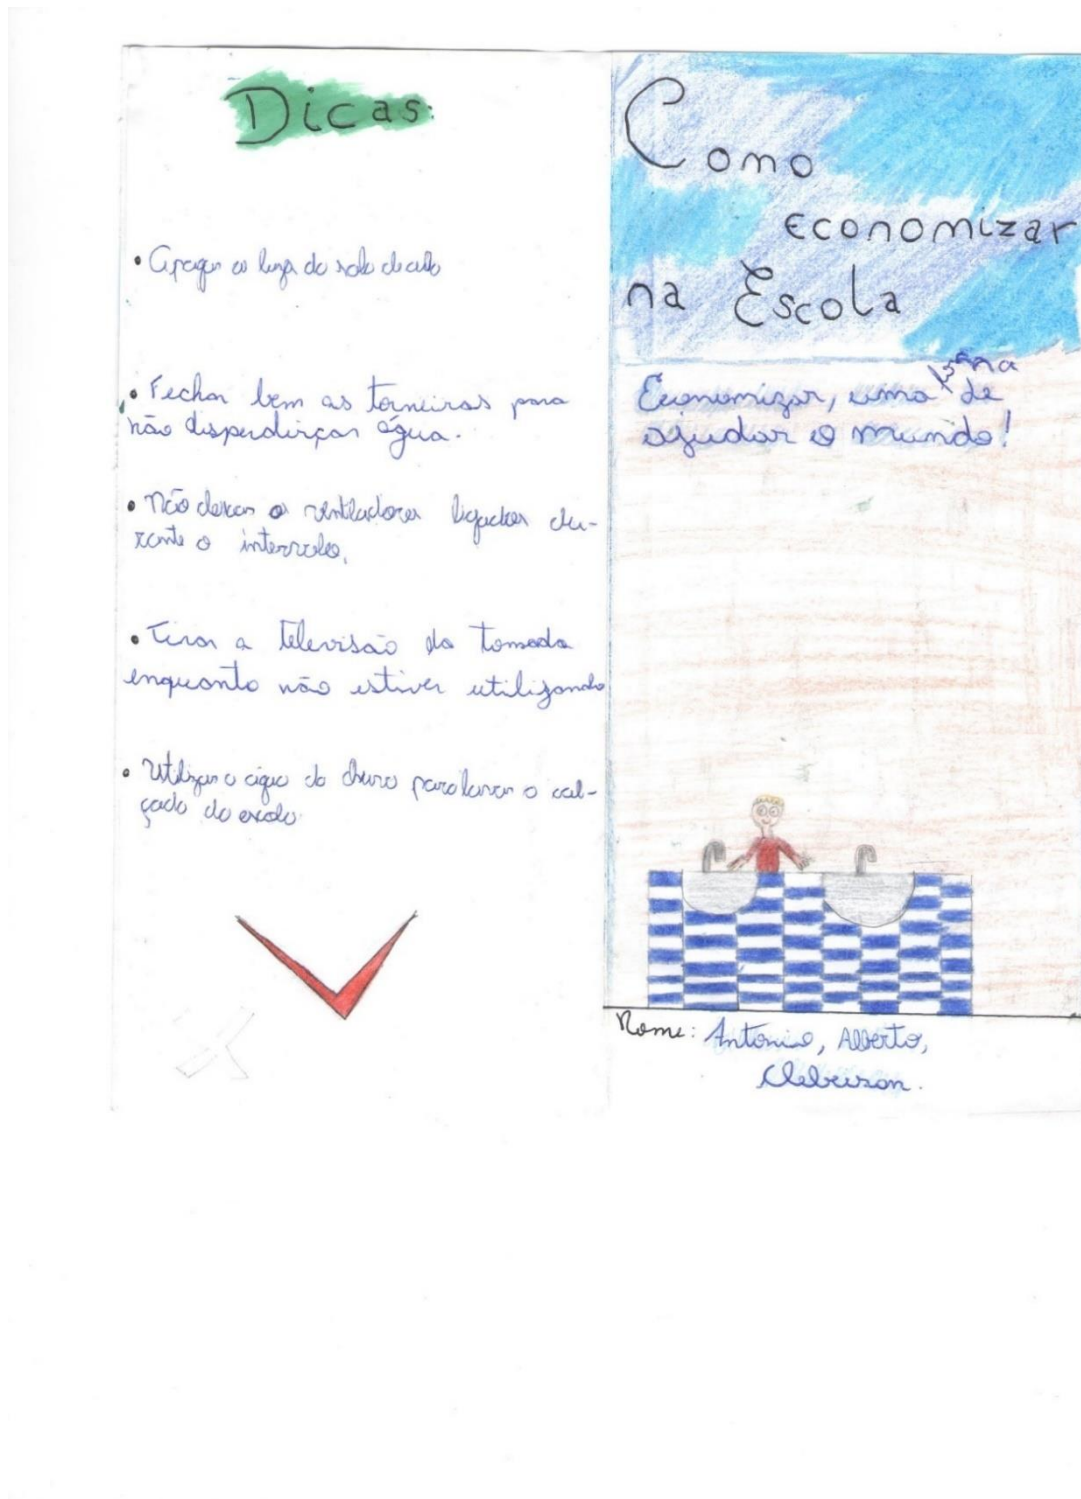 Dicas:
• Apagar as luzes da sala de aula
• Fechar bem as torneiras para
não disperdirçar água.
• Não deixar o ventiladores ligados du-
rante o intervalo,
• Tirar a televisão da tomada
enquanto não estiver utilizando
• Utilizar a água da chuva para lavar o cal-
çado da escola
Como
economizar
na Escola
Economizar, uma forma de
ajudar o mundo!
Nome: Antonio, Alberto,
Cleberson.